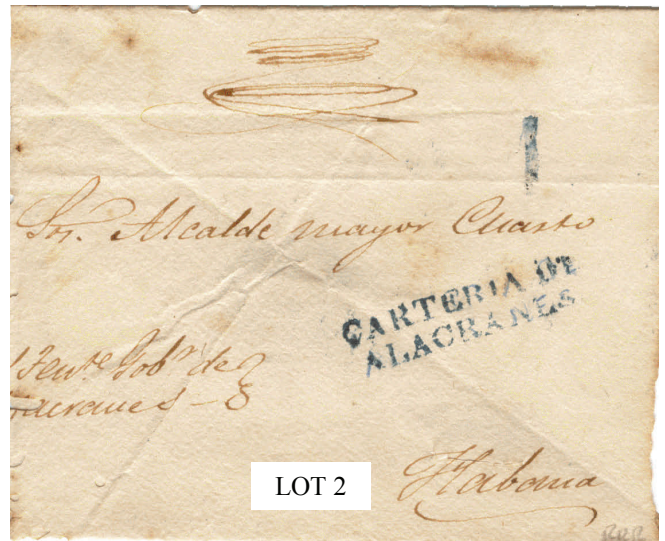 1
Sr. Alcalde mayor Cuarto
CARTERIA DE
ALACRANES
Tente Gobr de
acranes
LOT 2
Habana
RRR